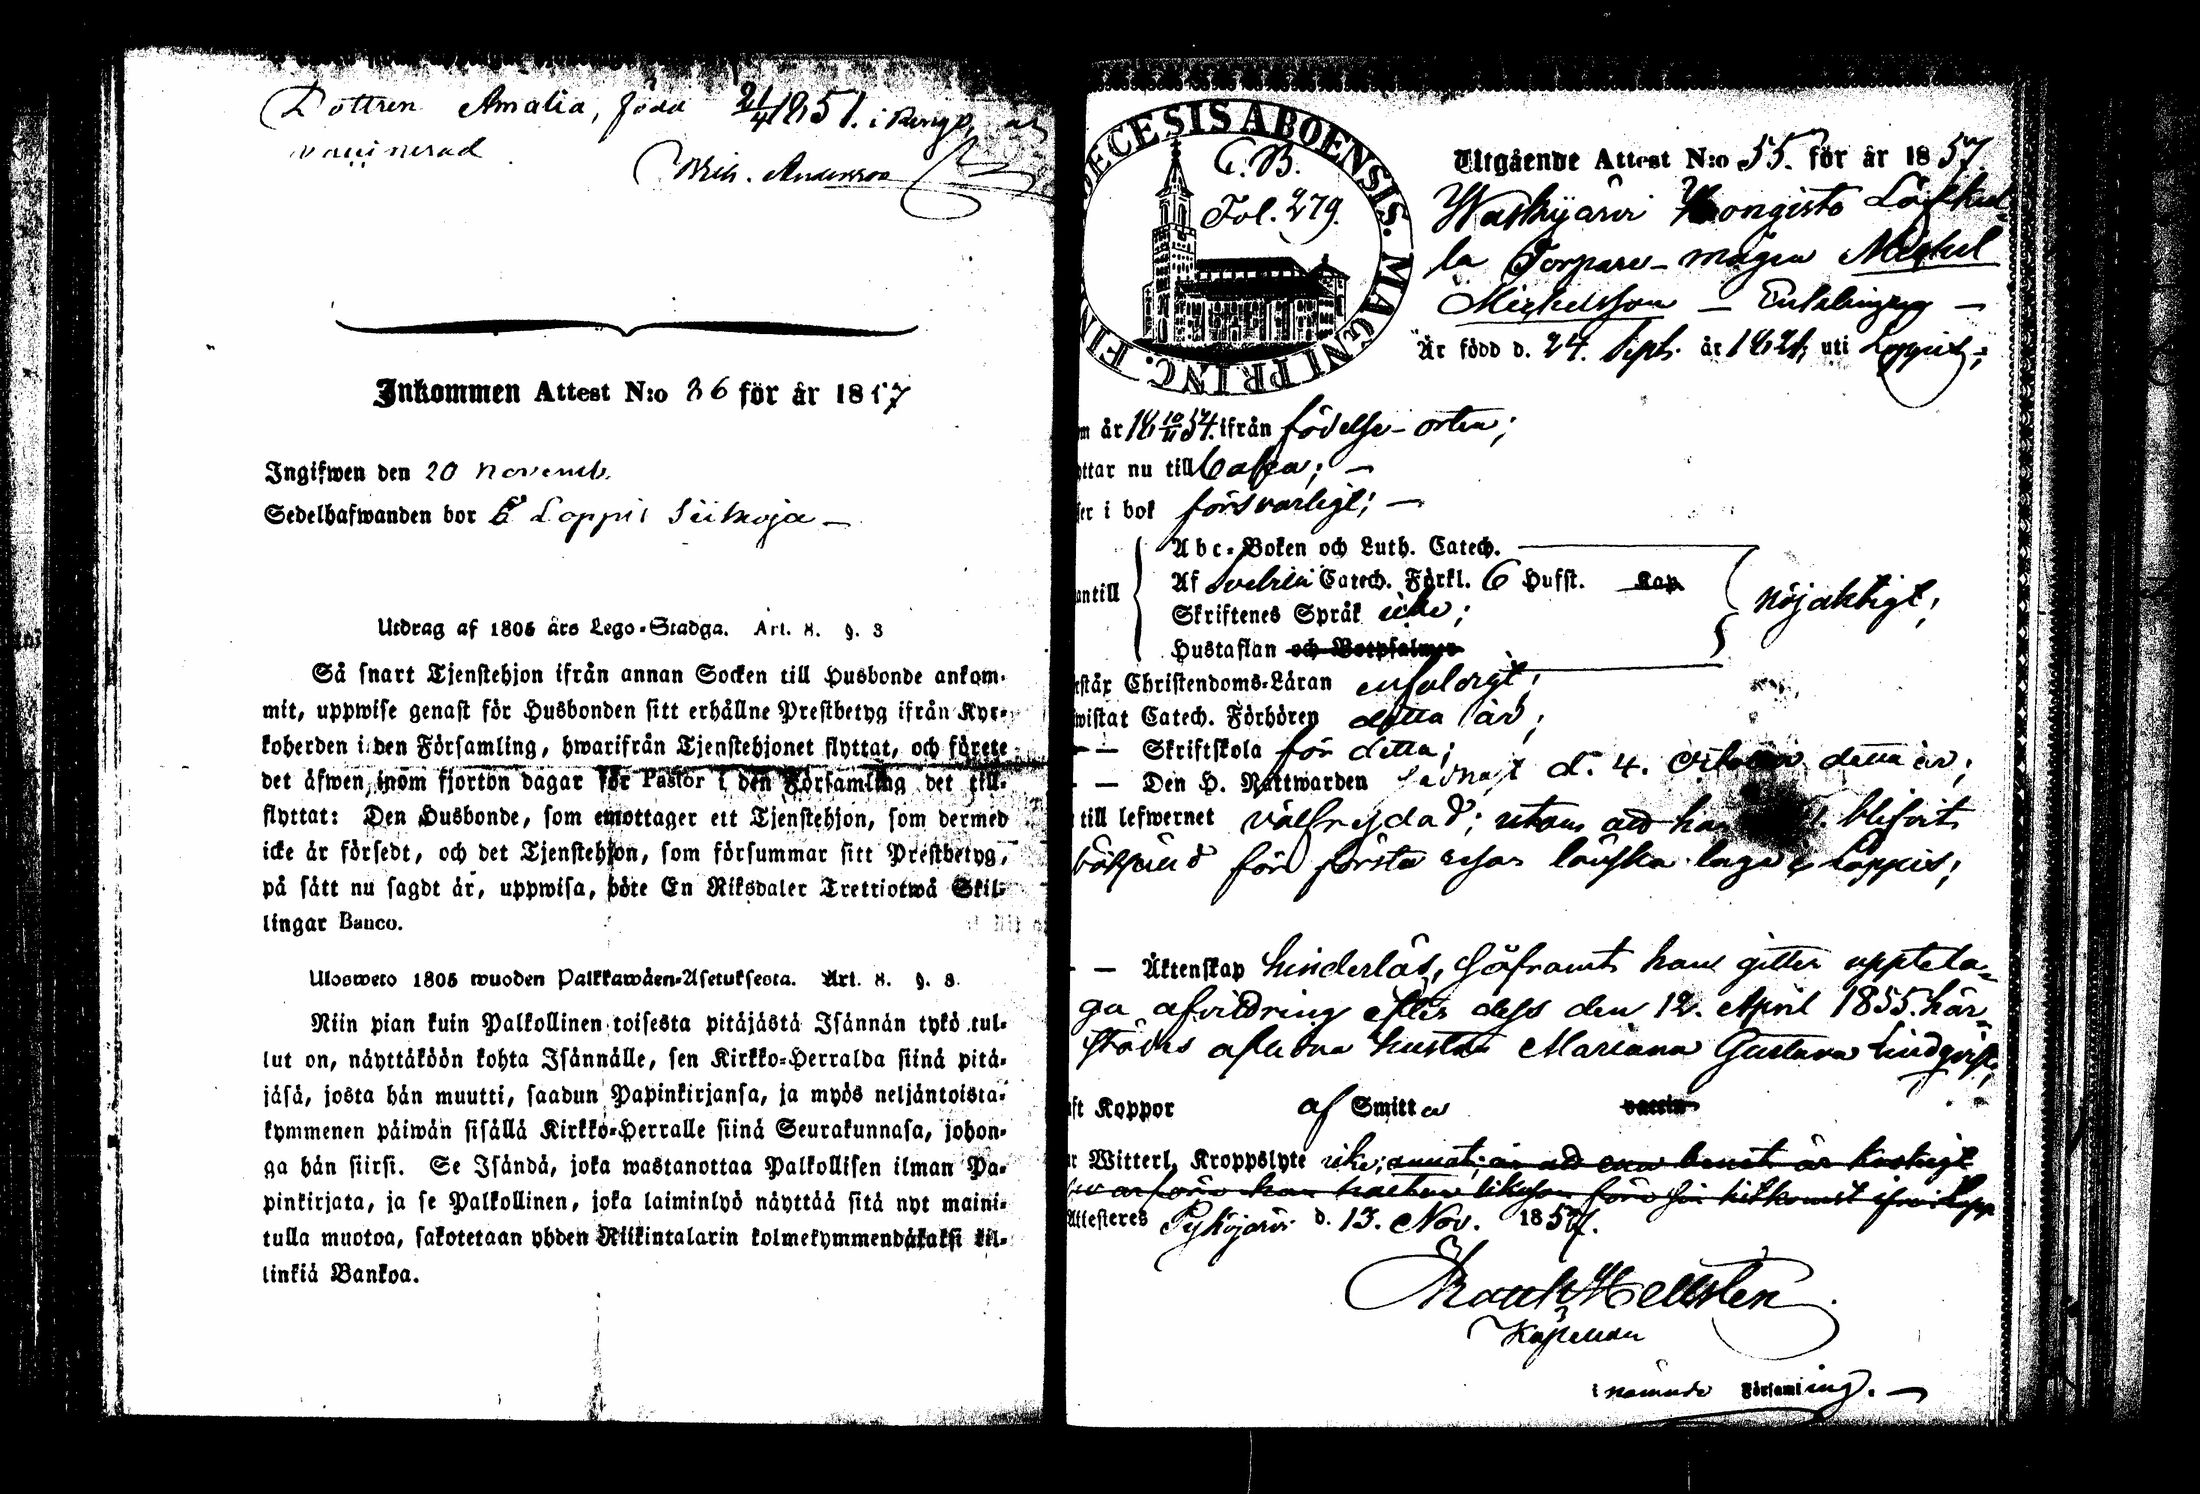 Dottren Amalia, född 21/4 1851. i Rengo,
vaccinerad
Inkommen Attest N:o 36 för år 1857
Ingifwen den 20 Novemb.
Sedelhafwanden bor Loppis
Utdrag af 1805 års Lego-Stadga. Art. 8. §. 3
Så snart Tjenstehjon ifrån annan Socken till Husbonde ankom-
mit, uppwise genast för Husbonden sitt erhållne Prestbetyg ifrån Kyr-
koherden i den Församling, hwarifrån Tjenstehjonet flyttat, och förete
det äfwen inom fjorton dagar för Pastor i den Församling det till-
flyttat: Den Husbonde, som emottager ett Tjenstehjon, som dermed
icke är försedt, och det Tjenstehjon, som försummar sitt Prestbetyg,
på sätt nu sagdt är, uppwisa, böte En Riksdaler Trettiotwå Skil-
lingar Banco.
Ulosweto 1805 wuoden Palkkawäen-Asetuksesta. Art. 8. §. 3.
Niin pian kuin Palkollinen toisesta pitäjästä Isännän tykö tul-
lut on, näyttäköön kohta Isännälle, sen Kirkko-Herralda siinä pitä-
jäsä, josta hän muutti, saadun Papinkirjansa, ja myös neljäntoista-
kymmenen päiwän sisällä Kirkko-Herralle siinä Seurakunnasa, johon-
ga hän siirsi. Se Isändä, joka wastanottaa Palkollisen ilman Pa-
pinkirjata, ja se Palkollinen, joka laiminlyö näyttää sitä nyt maini-
tulla muotoa, sakotetaan yhden Riikintalarin kolmekymmendäkaksi kil-
linkiä Bankoa.
DECESIS ABOENSIS. MAGNI PRINC. FIN
C. B.
Fol. 279.
Utgående Attest N:o 55. för år 1857
Waskijärvi Hongisto
la Torpare-mågen Michel
Michelsson — —
Är född d. 24. Sept. år 1821, uti Loppis;
m år 18 10/11 54. ifrån födelse-orten;
yttar nu till —
ser i bok försvarligt; —
Abc-Boken och Luth. Catech.
antill Af Svebilii Catech. Förkl. 6 Hufst. Kap
Skriftenes Språk icke;
nöjaktigt;
Hustaflan och Botpsalmer
estår Christendoms-Läran enfaldigt;
wistat Catech. Förhören detta år;
— — Skriftskola för detta;
— — Den H. Nattwarden sednast d. 4. October detta år;
till lefwernet välfrejdad; utom att han blifvit
för första resan lönska läge i Loppis;
— — Äktenskap hinderlös, såframt han gitter uppteta-
ga afvittring efter dess den 12. April 1855. här-
städes aflidna hustru Mariana Gustava Lindqvist;
ft Koppor af Smitta vaccin
r Witterl. Kroppslyte icke; annat, än att ena benet är
Attesteres Pyhäjärvi d. 13. Nov. 1857.
Hellsten
Kapellan
i nämnde Församling. —